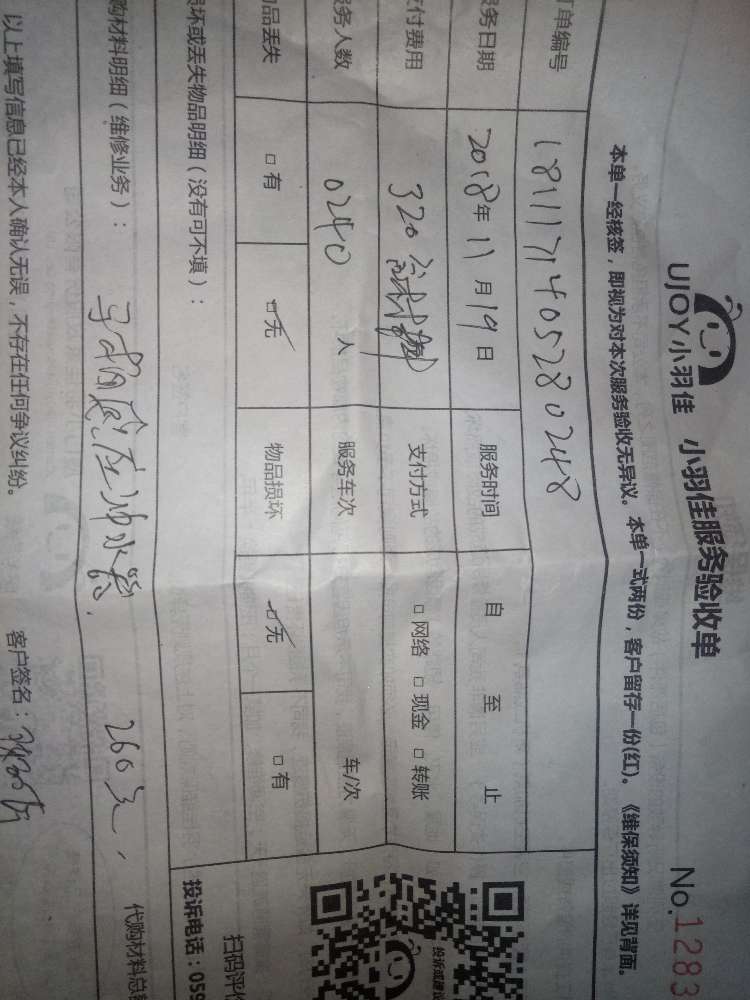 UJOY小羽佳 小羽佳服务验收单 No.1283
本单一经核签，即视为对本次服务验收无异议。本单一式两份，客户留存一份(红)。《维保须知》详见背面。
订单编号 1811171405280248
服务日期 2018年11月19日 服务时间 自 至 止
支付费用 320 支付方式 □网络 □现金 □转账
服务人数 0240 人 服务车次 车/次
物品丢失 □有 ☑无 物品损坏 ☑无 □有
损坏或丢失物品明细（没有可不填）：
扫码评价
投诉电话：059
投诉或建议
代购材料明细（维修业务）： 260元， 代购材料总
以上填写信息已经本人确认无误，不存在任何争议纠纷。 客户签名：